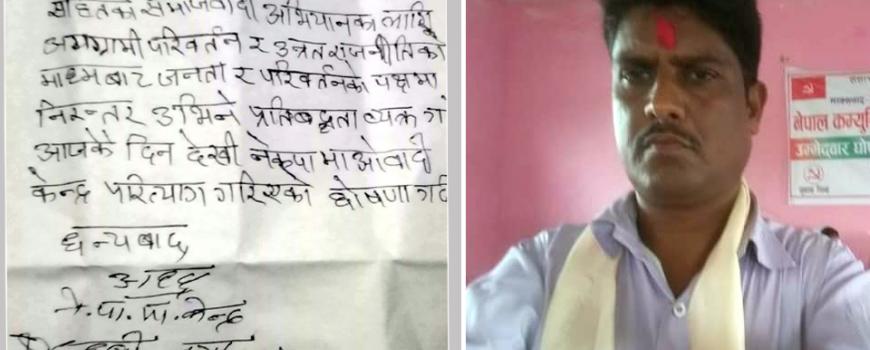 सहितको समाजवादी अभियानका लागि
अग्रगामी परिवर्तन र उन्नत राजनीतिको
माध्मबाट जनता र परिवर्तनका पक्षमा
निरन्तर उभिने प्रतिबद्धता व्यक्त ग
आजकै दिन देखी नेकपा माओवादी
केन्द्र परित्याग गरिएको घोषणा गर्द
धन्यबाद
ने.पा.मा.केन्द्र
नेपाल कम्यु
उम्मेदवार घोष